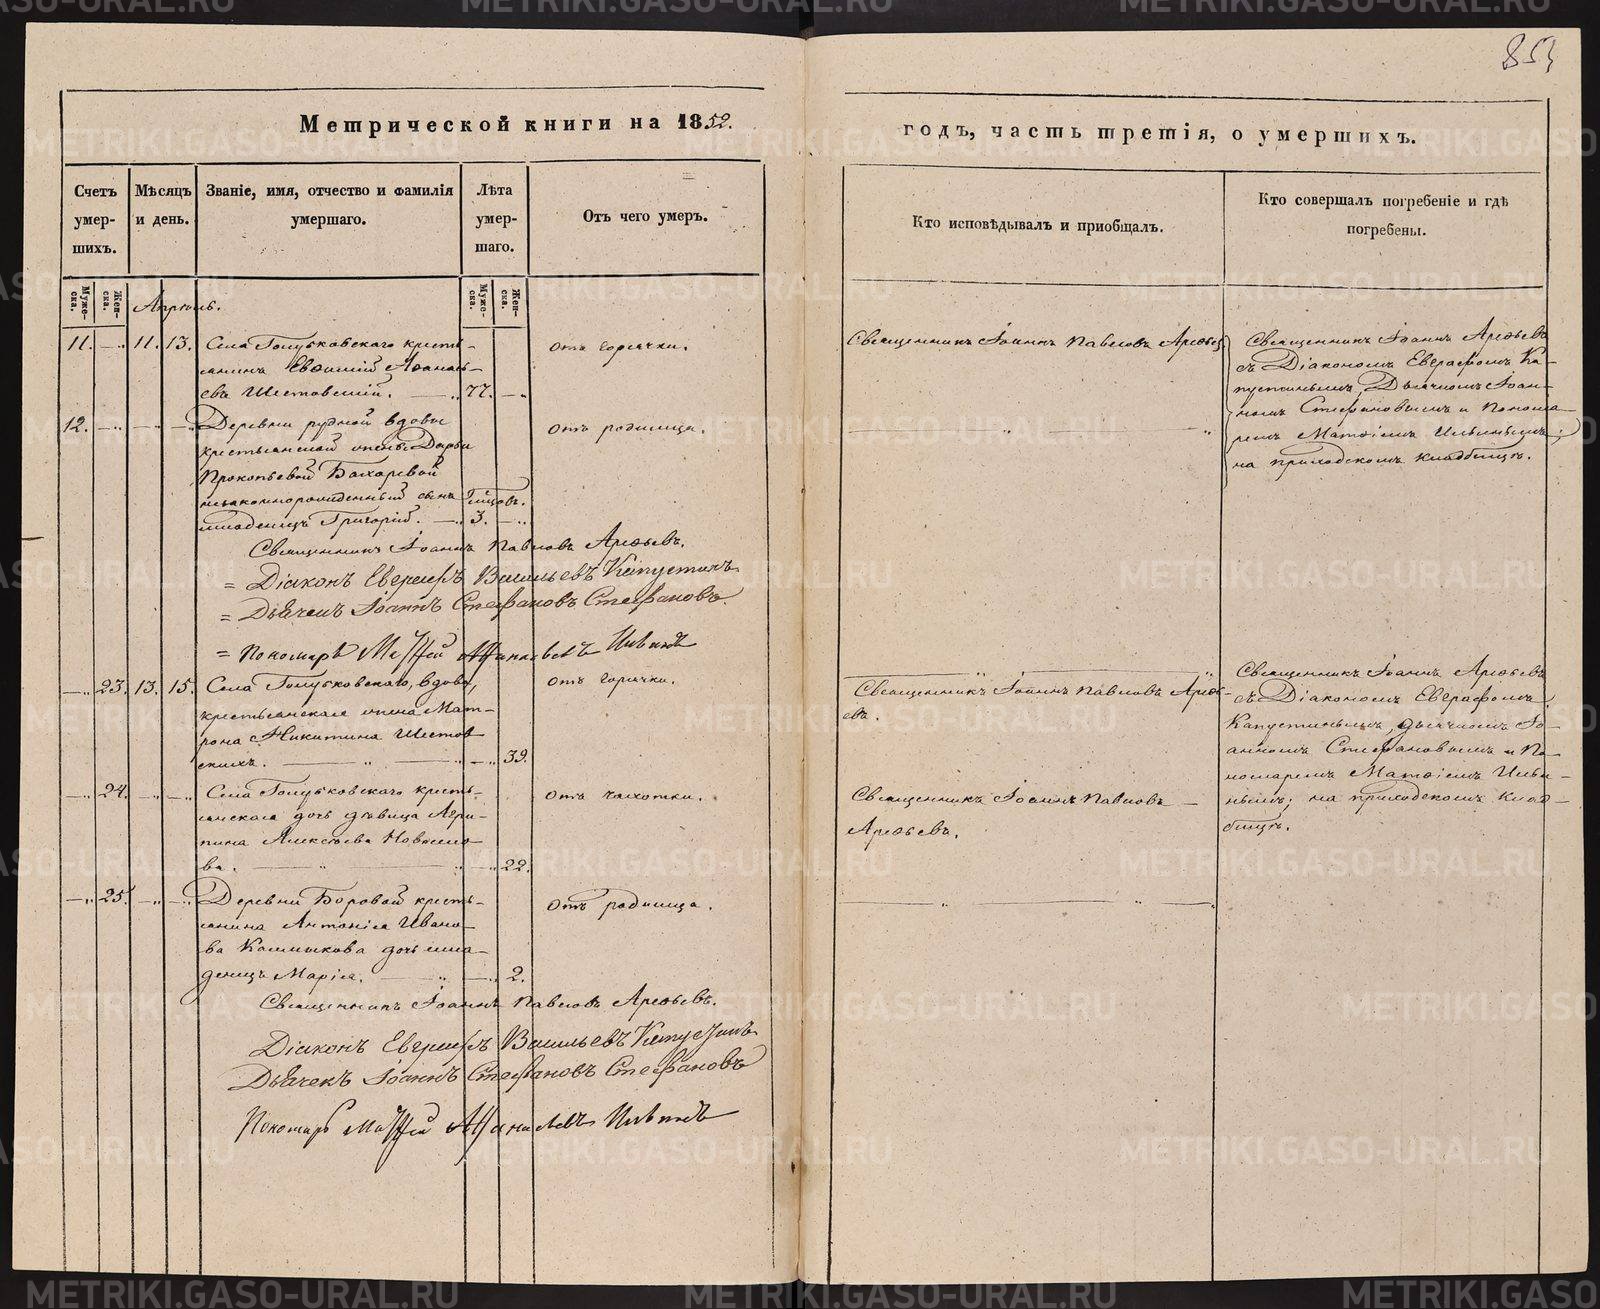 853
Метрической книги на 1852.
годъ, часть третія, о умершихъ.
Счетъ умер-шихъ.
Мѣсяцъ и день.
Званіе, имя, отчество и фамилія умершаго.
Лѣта умер-шаго.
Отъ чего умеръ.
Кто исповѣдывалъ и приобщалъ.
Кто совершалъ погребеніе и гдѣ погребены.
Муже-ска.
Жен-ска.
Муже-ска.
Жен-ска.
Апрѣль.
11. 11. 13. Села Голубковскаго кресть-
янинъ Евѳимій Аѳанась-
евъ Шестовскій. 77.
отъ горячки.
Священникъ Іоаннъ Павловъ Арефьевъ
Священникъ Іоаннъ Арефьевъ
съ Діакономъ Евграфомъ Ка-
пустинымъ, Дьячкомъ Іоан-
номъ Стефановымъ и Понома-
ремъ Матѳіемъ Ильинымъ;
на приходскомъ кладбищѣ.
12. Деревни рудной вдовы
крестьянской жены Дарьи
Прокопьевой Бохаревой
незаконнорожденный сынъ
младенецъ Григорій. 3.
отъ родимца.
Священникъ Іоаннъ Павловъ Арефьевъ.
= Діаконъ Евграфъ Васильевъ Капустинъ
= Дьячекъ Іоаннъ Стефановъ Стефановъ.
= Пономарь Матѳей Аѳанасьевъ Ильинъ
23. 13. 15. Села Голубковскаго, вдова,
крестьянская жена Мат-
рона Никитина Шестов-
скихъ. 39.
отъ горячки.
Священникъ Іоаннъ Павловъ Арефь-
евъ.
Священникъ Іоаннъ Арефьевъ
съ Діакономъ Евграфомъ
Капустинымъ, дьячкомъ Іо-
анномъ Стефановымъ и По-
номаремъ Матѳіемъ Ильи-
нымъ; на приходскомъ клад-
бищѣ.
24. Села Голубковскаго кресть-
янская дочь дѣвица Агри-
пина Алексѣева Новосело-
ва. 22.
отъ чахотки.
Священникъ Іоаннъ Павловъ
Арефьевъ.
25. Деревни Боровой кресть-
янина Антонія Ивано-
ва Калмыкова дочь мла-
денецъ Марія. 2.
отъ родимца.
Священникъ Іоаннъ Павловъ Арефьевъ.
Діаконъ Евграфъ Васильевъ Капустинъ
Дьячекъ Іоаннъ Стефановъ Стефановъ
Пономарь Матѳей Аѳанасьевъ Ильинъ
METRIKI.GASO-URAL.RU